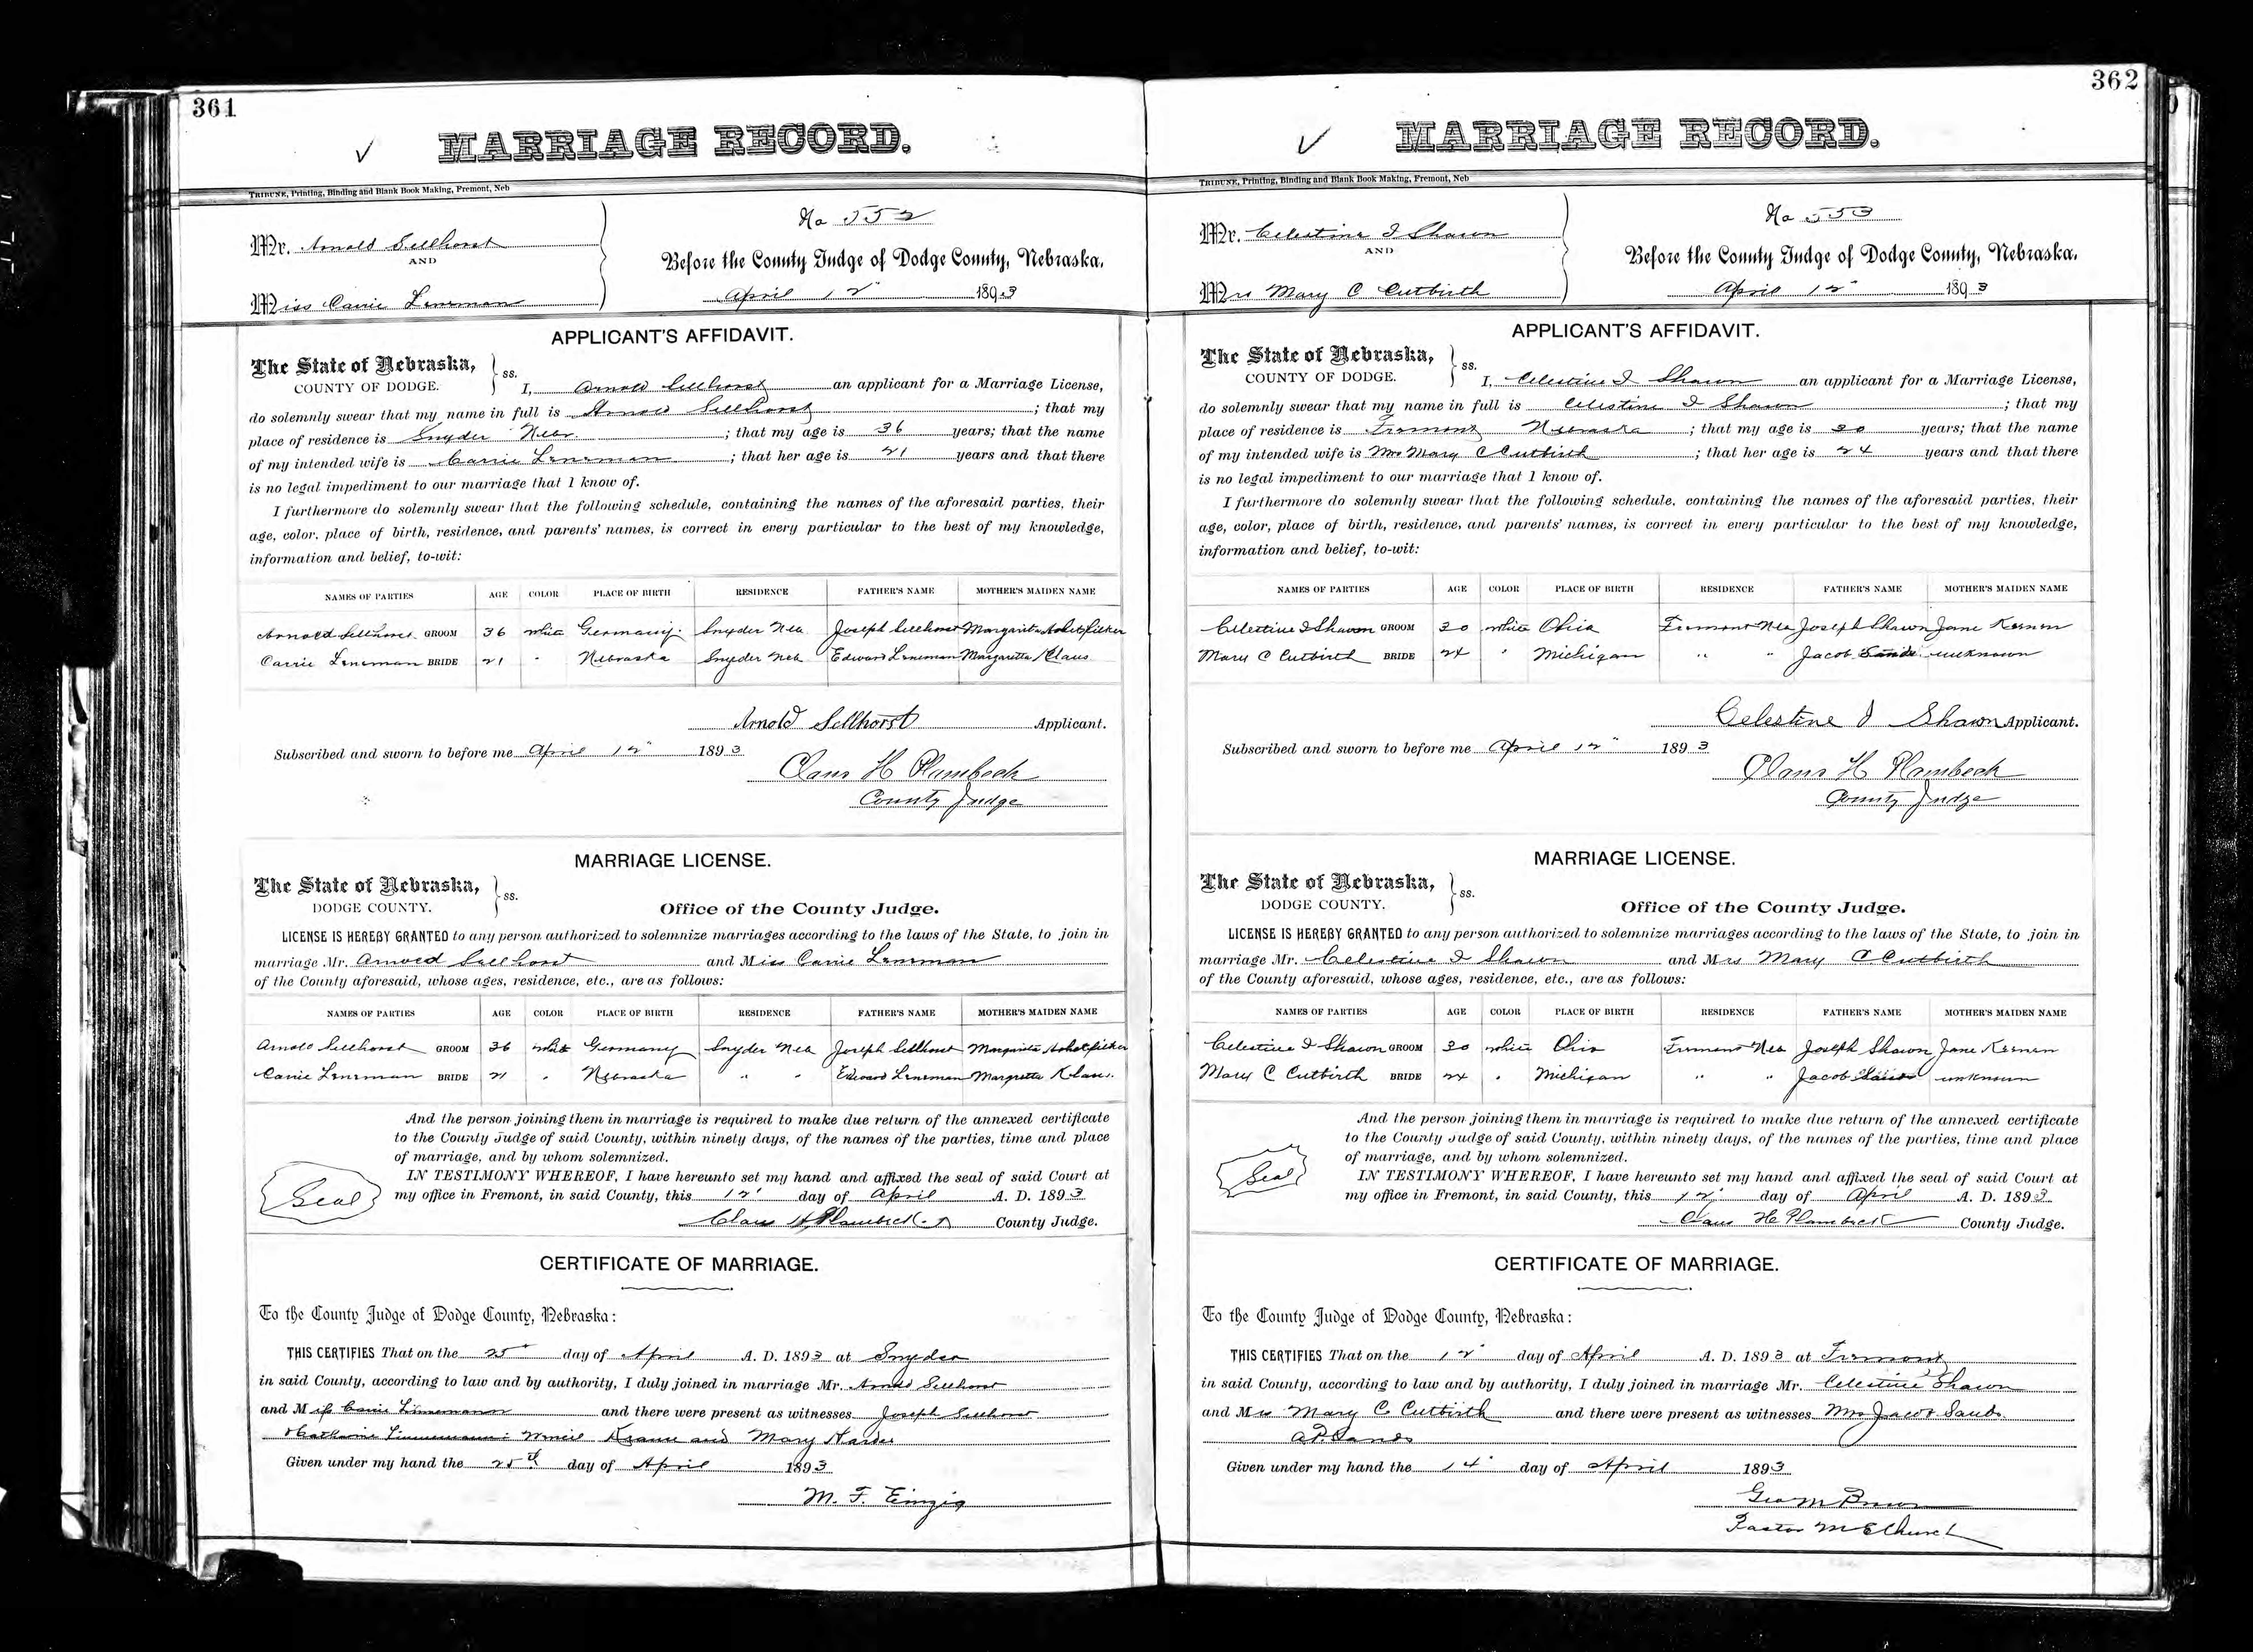 361
MARRIAGE RECORD.
TRIBUNE, Printing, Binding and Blank Book Making, Fremont, Neb
No 552
Mr. Arnold Sellhorst
AND
Before the County Judge of Dodge County, Nebraska.
Miss Carrie Lineman
April 12" 1893
APPLICANT'S AFFIDAVIT.
The State of Nebraska, ss.
COUNTY OF DODGE. I, Arnold Sellhorst an applicant for a Marriage License,
do solemnly swear that my name in full is Arnold Sellhorst ; that my
place of residence is Snyder Nebr. ; that my age is 36 years; that the name
of my intended wife is Carrie Lineman ; that her age is 21 years and that there
is no legal impediment to our marriage that I know of.
I furthermore do solemnly swear that the following schedule, containing the names of the aforesaid parties, their
age, color, place of birth, residence, and parents' names, is correct in every particular to the best of my knowledge,
information and belief, to-wit:
NAMES OF PARTIES AGE COLOR PLACE OF BIRTH RESIDENCE FATHER'S NAME MOTHER'S MAIDEN NAME
Arnold Sellhorst GROOM 36 white Germany Snyder Neb Joseph Sellhorst Margarita
Carrie Lineman BRIDE 21 " Nebraska Snyder Neb Edward Lineman Margaretta Klaus
Arnold Sellhorst Applicant.
Subscribed and sworn to before me April 12" 1893
Claus H Plambeck
County Judge
MARRIAGE LICENSE.
The State of Nebraska, ss.
DODGE COUNTY. Office of the County Judge.
LICENSE IS HEREBY GRANTED to any person authorized to solemnize marriages according to the laws of the State, to join in
marriage Mr. Arnold Sellhorst and Miss Carrie Lineman
of the County aforesaid, whose ages, residence, etc., are as follows:
NAMES OF PARTIES AGE COLOR PLACE OF BIRTH RESIDENCE FATHER'S NAME MOTHER'S MAIDEN NAME
Arnold Sellhorst GROOM 36 white Germany Snyder Neb Joseph Sellhorst Margarita
Carrie Lineman BRIDE 21 " Nebraska " " Edward Lineman Margretta Klaus
And the person joining them in marriage is required to make due return of the annexed certificate
to the County Judge of said County, within ninety days, of the names of the parties, time and place
of marriage, and by whom solemnized.
IN TESTIMONY WHEREOF, I have hereunto set my hand and affixed the seal of said Court at
Seal my office in Fremont, in said County, this 12" day of April A. D. 1893
Claus H Plambeck County Judge.
CERTIFICATE OF MARRIAGE.
To the County Judge of Dodge County, Nebraska:
THIS CERTIFIES That on the 25" day of April A. D. 1893 at Snyder
in said County, according to law and by authority, I duly joined in marriage Mr. Arnold Sellhorst
and Miss Carrie Linnemann and there were present as witnesses Joseph Sellhorst
Katharine Linnemann and Mary
Given under my hand the 25th day of April 1893
M. F. Einzig
362
MARRIAGE RECORD.
TRIBUNE, Printing, Binding and Blank Book Making, Fremont, Neb
No 553
Mr. Celestine I Shawn
AND
Before the County Judge of Dodge County, Nebraska.
Mrs Mary C Cutbirth
April 12" 1893
APPLICANT'S AFFIDAVIT.
The State of Nebraska, ss.
COUNTY OF DODGE. I, Celestine I Shawn an applicant for a Marriage License,
do solemnly swear that my name in full is Celestine I Shawn ; that my
place of residence is Fremont Nebraska ; that my age is 30 years; that the name
of my intended wife is Mrs Mary C Cutbirth ; that her age is 24 years and that there
is no legal impediment to our marriage that I know of.
I furthermore do solemnly swear that the following schedule, containing the names of the aforesaid parties, their
age, color, place of birth, residence, and parents' names, is correct in every particular to the best of my knowledge,
information and belief, to-wit:
NAMES OF PARTIES AGE COLOR PLACE OF BIRTH RESIDENCE FATHER'S NAME MOTHER'S MAIDEN NAME
Celestine I Shawn GROOM 30 white Ohio Fremont Neb Joseph Shawn Jane Kernen
Mary C Cutbirth BRIDE 24 " Michigan " " Jacob Sands unknown
Celestine I Shawn Applicant.
Subscribed and sworn to before me April 12" 1893
Claus H Plambeck
County Judge
MARRIAGE LICENSE.
The State of Nebraska, ss.
DODGE COUNTY. Office of the County Judge.
LICENSE IS HEREBY GRANTED to any person authorized to solemnize marriages according to the laws of the State, to join in
marriage Mr. Celestine I Shawn and Mrs Mary C Cutbirth
of the County aforesaid, whose ages, residence, etc., are as follows:
NAMES OF PARTIES AGE COLOR PLACE OF BIRTH RESIDENCE FATHER'S NAME MOTHER'S MAIDEN NAME
Celestine I Shawn GROOM 30 white Ohio Fremont Neb Joseph Shawn Jane Kernen
Mary C Cutbirth BRIDE 24 " Michigan " " Jacob Sands unknown
And the person joining them in marriage is required to make due return of the annexed certificate
to the County Judge of said County, within ninety days, of the names of the parties, time and place
of marriage, and by whom solemnized.
IN TESTIMONY WHEREOF, I have hereunto set my hand and affixed the seal of said Court at
Seal my office in Fremont, in said County, this 12" day of April A. D. 1893
Claus H Plambeck County Judge.
CERTIFICATE OF MARRIAGE.
To the County Judge of Dodge County, Nebraska:
THIS CERTIFIES That on the 12" day of April A. D. 1893 at Fremont
in said County, according to law and by authority, I duly joined in marriage Mr. Celestine Shawn
and Mrs Mary C Cutbirth and there were present as witnesses Mrs Jacob Sands
A.P. Sands
Given under my hand the 14" day of April 1893
Geo M Brown
Pastor M E Church